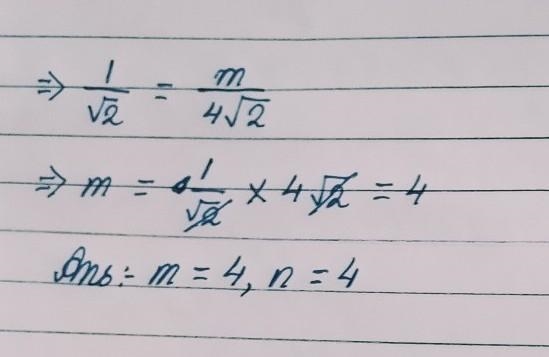 ⇒ 1/√2 = m/4√2
⇒ m = 1/√2 × 4√2 = 4
Ans:- m = 4, n = 4